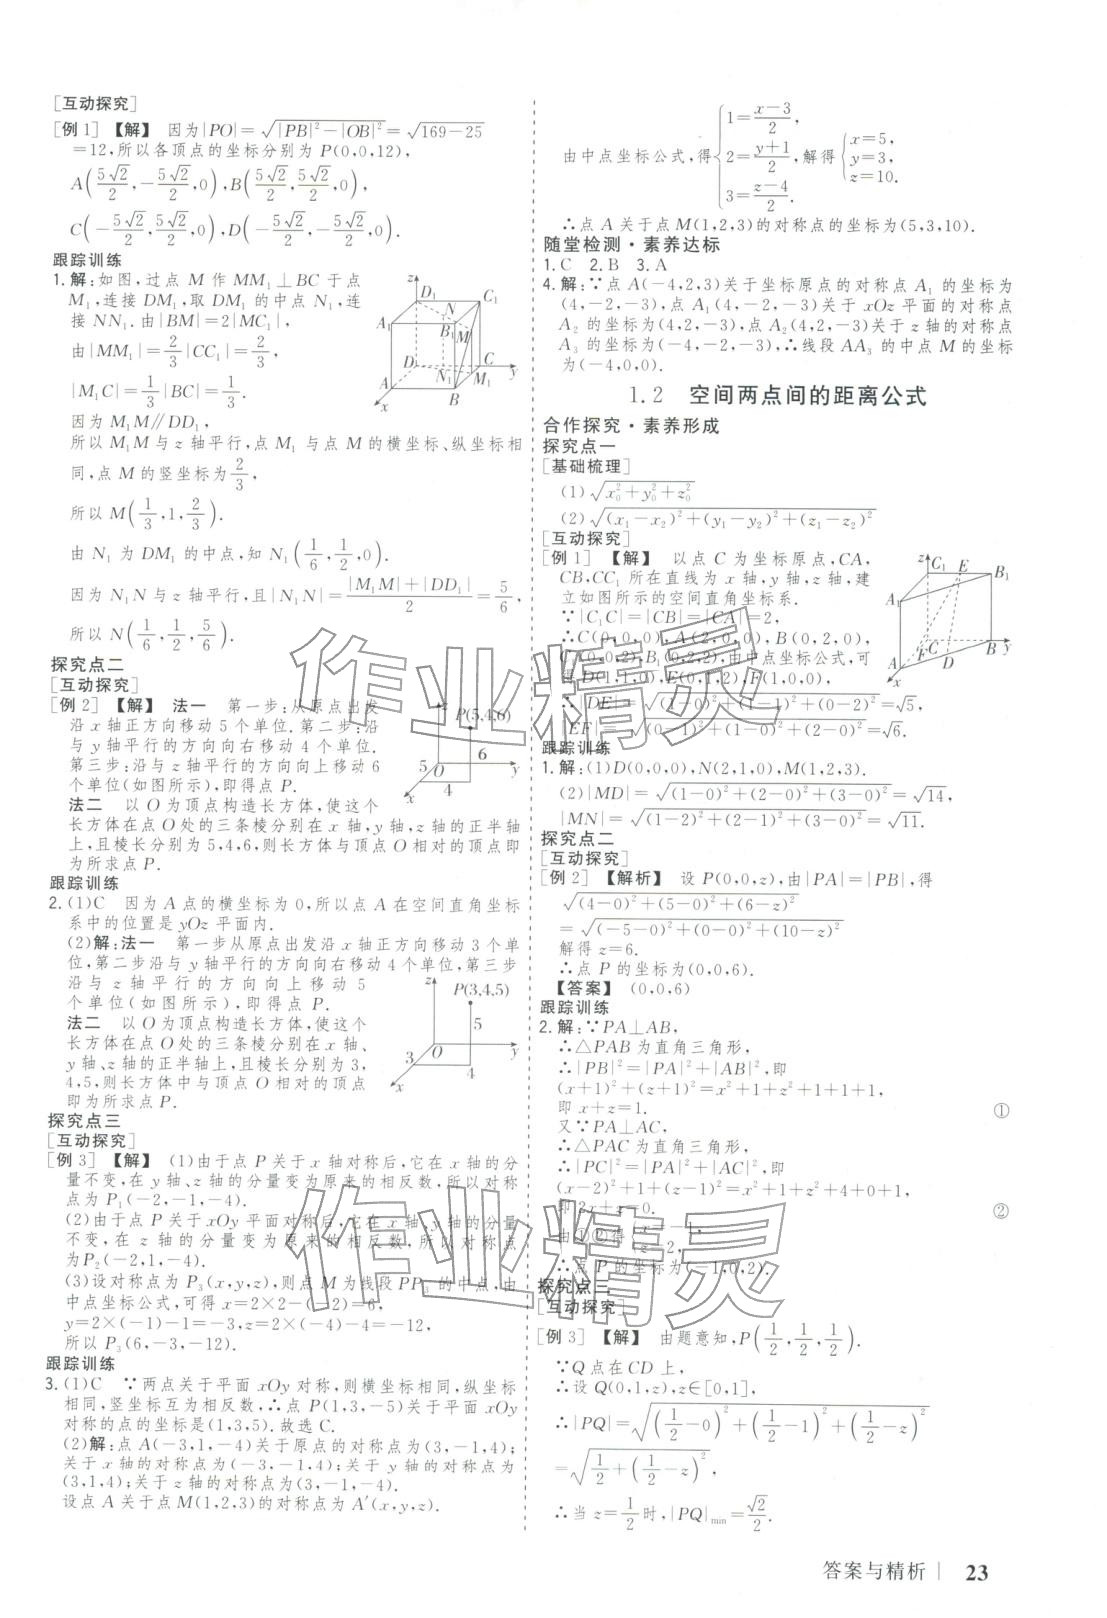 [互动探究]
[例1] 【解】 因为|PO|=√(|PB|²-|OB|²)=√(169-25)
=12,所以各顶点的坐标分别为 P(0,0,12),
A(5√2/2,-5√2/2,0),B(5√2/2,5√2/2,0),
C(-5√2/2,5√2/2,0),D(-5√2/2,-5√2/2,0).
跟踪训练
1.解:如图,过点 M 作 MM₁⊥BC 于点
M₁,连接 DM₁,取 DM₁ 的中点 N₁,连
接 NN₁.由|BM|=2|MC₁|,
由|MM₁|=2/3|CC₁|=2/3,
|M₁C|=1/3|BC|=1/3.
因为 M₁M∥DD₁,
所以 M₁M与 z 轴平行,点 M₁ 与点 M 的横坐标、纵坐标相
同,点 M 的竖坐标为2/3,
所以 M(1/3,1,2/3).
由 N₁ 为 DM₁ 的中点,知 N₁(1/6,1/2,0).
因为 N₁N与 z 轴平行,且|N₁N|=(|M₁M|+|DD₁|)/2=5/6,
所以 N(1/6,1/2,5/6).
z
D₁
C₁
N
A₁
B₁
M
D
C
N₁
M₁
y
A
B
x
探究点二
[互动探究]
[例2] 【解】 法一 第一步:从原点出发
沿 x 轴正方向移动 5 个单位.第二步:沿
与 y 轴平行的方向向右移动 4 个单位.
第三步:沿与 z 轴平行的方向向上移动 6
个单位(如图所示),即得点 P.
法二 以 O 为顶点构造长方体,使这个
长方体在点 O 处的三条棱分别在 x 轴,y 轴,z 轴的正半轴
上,且棱长分别为 5,4,6,则长方体与顶点 O 相对的顶点即
为所求点 P.
P(5,4,6)
6
5
O
y
4
x
跟踪训练
2.(1)C 因为 A 点的横坐标为 0,所以点 A 在空间直角坐标
系中的位置是 yOz 平面内.
(2)解:法一 第一步从原点出发沿 x 轴正方向移动 3 个单
位,第二步沿与 y 轴平行的方向向右移动 4 个单位,第三步
沿与 z 轴平行的方向向上移动 5
个单位(如图所示),即得点 P.
法二 以 O 为顶点构造长方体,使这个
长方体在点 O 处的三条棱分别在 x 轴、
y 轴、z 轴的正半轴上,且棱长分别为 3,
4,5,则长方体中与顶点 O 相对的顶点
即为所求点 P.
z
P(3,4,5)
5
3
O
y
4
x
探究点三
[互动探究]
[例3] 【解】 (1)由于点 P 关于 x 轴对称后,它在 x 轴的分
量不变,在 y 轴、z 轴的分量变为原来的相反数,所以对称
点为 P₁(-2,-1,-4).
(2)由于点 P 关于 xOy 平面对称后,它在 x 轴、y 轴的分量
不变,在 z 轴的分量变为原来的相反数,所以对称点
为P₂(-2,1,-4).
(3)设对称点为 P₃(x,y,z),则点 M 为线段 PP₃ 的中点,由
中点坐标公式,可得 x=2×2-(-2)=6,
y=2×(-1)-1=-3,z=2×(-4)-4=-12,
所以 P₃(6,-3,-12).
跟踪训练
3.(1)C ∵两点关于平面 xOy 对称,则横坐标相同,纵坐标
相同,竖坐标互为相反数,∴点 P(1,3,-5)关于平面 xOy
对称的点的坐标是(1,3,5).故选 C.
(2)解:点 A(-3,1,-4)关于原点的对称点为(3,-1,4);
关于 x 轴的对称点为(-3,-1,4);关于 y 轴的对称点为
(3,1,4);关于 z 轴的对称点为(3,-1,-4).
设点 A 关于点 M(1,2,3)的对称点为 A′(x,y,z),
由中点坐标公式,得{1=(x-3)/2, 2=(y+1)/2, 3=(z-4)/2. 解得{x=5, y=3, z=10.
∴点 A 关于点 M(1,2,3)的对称点的坐标为(5,3,10).
随堂检测·素养达标
1.C 2.B 3.A
4.解:∵点 A(-4,2,3)关于坐标原点的对称点 A₁ 的坐标为
(4,-2,-3),点 A₁(4,-2,-3)关于 xOz 平面的对称点
A₂ 的坐标为(4,2,-3),点 A₂(4,2,-3)关于 z 轴的对称点
A₃ 的坐标为(-4,-2,-3),∴线段 AA₃ 的中点 M 的坐标
为(-4,0,0).
1.2 空间两点间的距离公式
合作探究·素养形成
探究点一
[基础梳理]
(1)√(x₀²+y₀²+z₀²)
(2)√((x₁-x₂)²+(y₁-y₂)²+(z₁-z₂)²)
[互动探究]
[例1] 【解】 以点 C 为坐标原点,CA,
CB,CC₁ 所在直线为 x 轴,y 轴,z 轴,建
立如图所示的空间直角坐标系.
∵|C₁C|=|CB|=|CA|=2,
∴C(0,0,0),A(2,0,0),B(0,2,0),
C₁(0,0,2),B₁(0,2,2),由中点坐标公式,可
得 D(1,1,0),E(0,1,2),F(1,0,0),
∴|DE|=√((1-0)²+(1-1)²+(0-2)²)=√5,
|EF|=√((0-1)²+(1-0)²+(2-0)²)=√6.
z
C₁
E
B₁
A₁
F
C
B
y
A
D
x
跟踪训练
1.解:(1)D(0,0,0),N(2,1,0),M(1,2,3).
(2)|MD|=√((1-0)²+(2-0)²+(3-0)²)=√14,
|MN|=√((1-2)²+(2-1)²+(3-0)²)=√11.
探究点二
[互动探究]
[例2] 【解析】 设 P(0,0,z),由|PA|=|PB|,得
√((4-0)²+(5-0)²+(6-z)²)
=√((-5-0)²+(0-0)²+(10-z)²)
解得 z=6.
∴点 P 的坐标为(0,0,6).
【答案】 (0,0,6)
跟踪训练
2.解:∵PA⊥AB,
∴△PAB 为直角三角形,
∴|PB|²=|PA|²+|AB|²,即
(x+1)²+(z+1)²=x²+1+z²+1+1+1,
即 x+z=1. ①
又∵PA⊥AC,
∴△PAC 为直角三角形,
∴|PC|²=|PA|²+|AC|²,即
(x-2)²+1+z²=x²+1+z²+4+0+1,
即 2x+z=0. ②
由①②得{x=-1, z=2,
∴点 P 的坐标为(-1,0,2).
探究点三
[互动探究]
[例3] 【解】 由题意知,P(1/2,1/2,1/2).
∵Q 点在 CD 上,
∴设 Q(0,1,z),z∈[0,1],
∴|PQ|=√((1/2-0)²+(1/2-1)²+(1/2-z)²)
=√(1/2+(1/2-z)²)
∴当 z=1/2时,|PQ|min=√2/2.
答案与精析 | 23
作业精灵
作业精灵